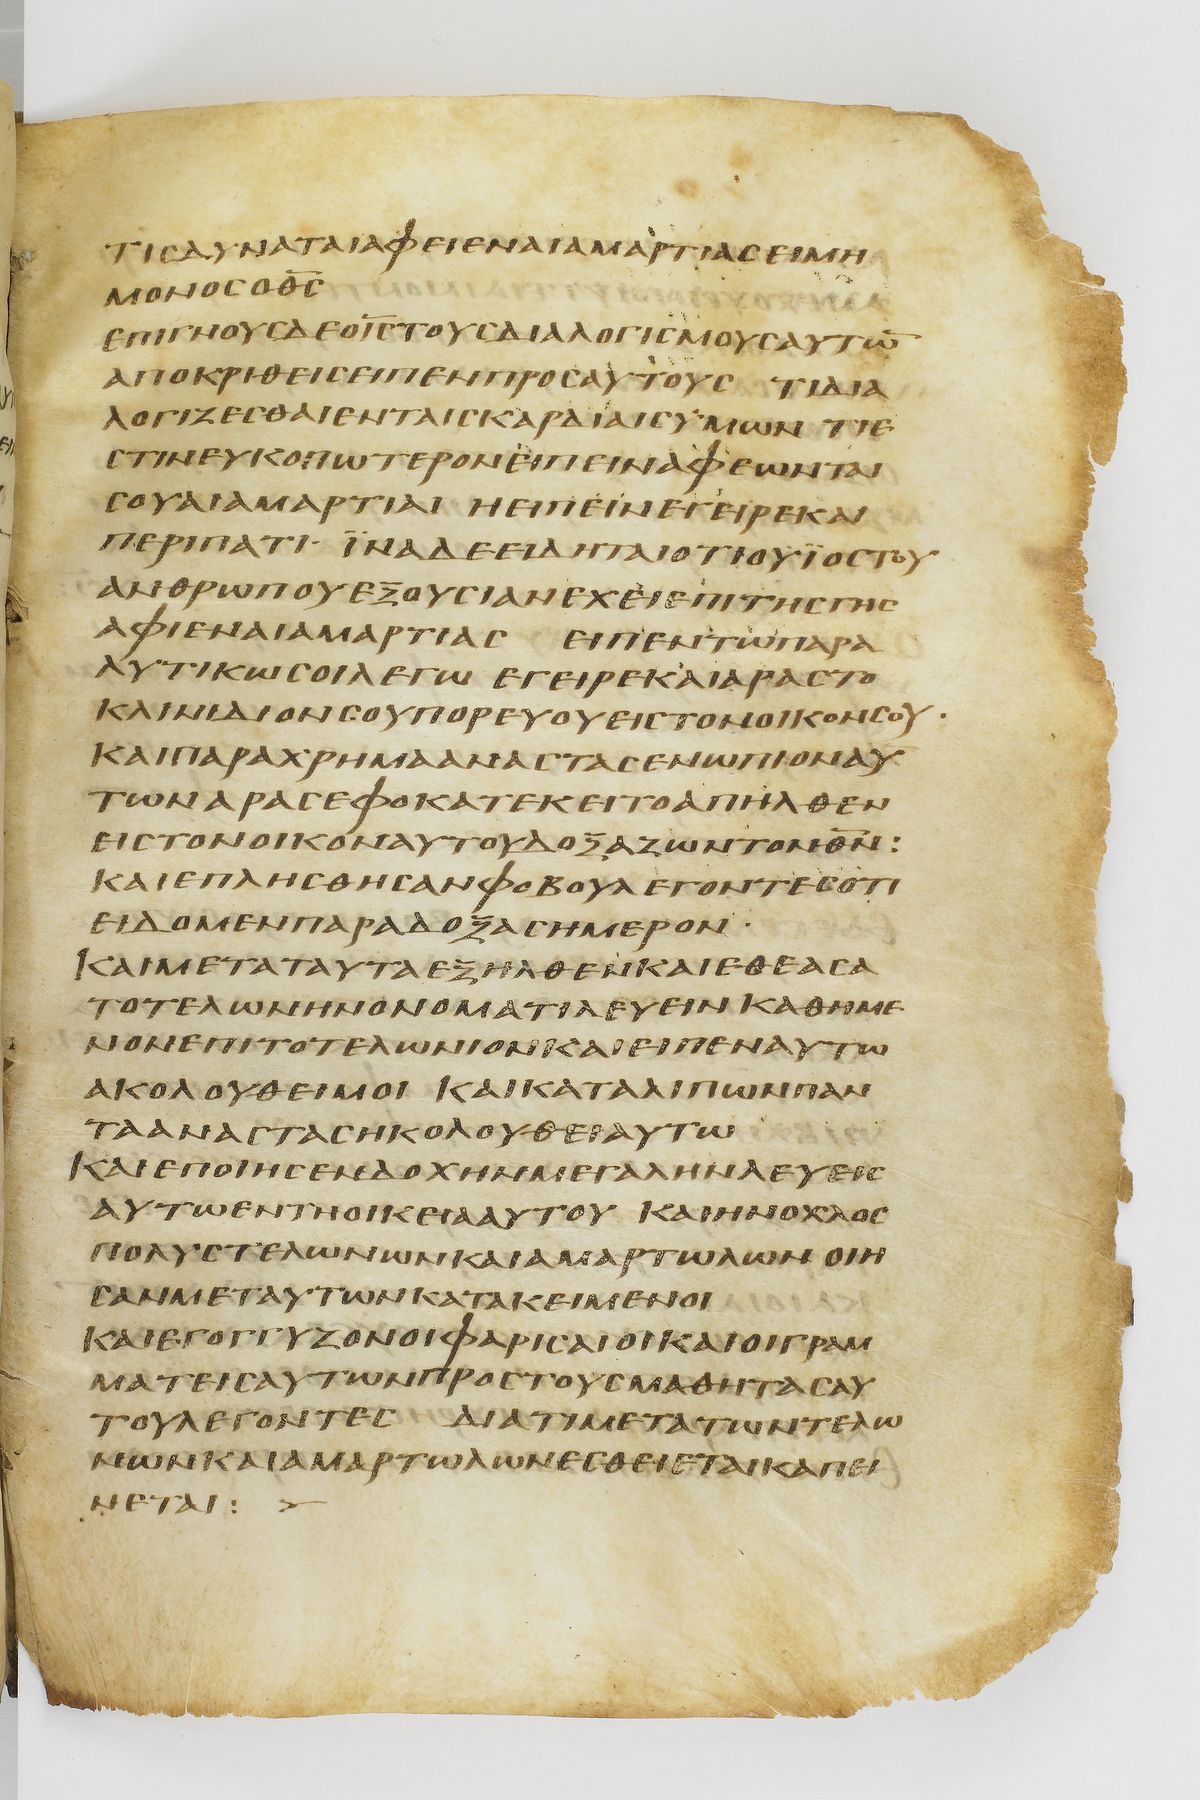 ΤΙСΔΥΝΑΤΑΙΑΦΕΙΕΝΑΙΑΜΑΡΤΙΑСΕΙΜΗ
ΜΟΝΟСΟΘ̅С̅
ΕΠΙΓΝΟΥСΔΕΟΙ̅С̅ΤΟΥСΔΙΑΛΟΓΙСΜΟΥСΑΥΤΩ̅
ΑΠΟΚΡΙΘΕΙСΕΙΠΕΝΠΡΟСΑΥΤΟΥС ΤΙΔΙΑ
ΛΟΓΙΖΕСΘΑΙΕΝΤΑΙСΚΑΡΔΙΑΙСΥΜΩΝ ΤΙΕ
СΤΙΝΕΥΚΟΠΩΤΕΡΟΝΕΙΠΕΙΝΑΦΕΩΝΤΑΙ
СΟΥΑΙΑΜΑΡΤΙΑΙ ΗΕΙΠΕΙΝΕΓΕΙΡΕΚΑΙ
ΠΕΡΙΠΑΤΙ· ΪΝΑΔΕΕΙΔΗΤΑΙΟΤΙΟΥΪΟСΤΟΥ
ΑΝΘΡΩΠΟΥΕΞΟΥСΙΑΝΕΧΕΙΕΠΙΤΗСΓΗС
ΑΦΙΕΝΑΙΑΜΑΡΤΙΑС ΕΙΠΕΝΤΩΠΑΡΑ
ΛΥΤΙΚΩСΟΙΛΕΓΩ ΕΓΕΙΡΕΚΑΙΑΡΑСΤΟ
ΚΛΙΝΙΔΙΟΝСΟΥΠΟΡΕΥΟΥΕΙСΤΟΝΟΙΚΟΝСΟΥ·
ΚΑΙΠΑΡΑΧΡΗΜΑΑΝΑСΤΑСΕΝΩΠΙΟΝΑΥ
ΤΩΝΑΡΑСΕΦΟΚΑΤΕΚΕΙΤΟΑΠΗΛΘΕΝ
ΕΙСΤΟΝΟΙΚΟΝΑΥΤΟΥΔΟΞΑΖΩΝΤΟΝΘ̅Ν̅:
ΚΑΙΕΠΛΗСΘΗСΑΝΦΟΒΟΥΛΕΓΟΝΤΕСΟΤΙ
ΕΙΔΟΜΕΝΠΑΡΑΔΟΞΑСΗΜΕΡΟΝ·
ΚΑΙΜΕΤΑΤΑΥΤΑΕΞΗΛΘΕΝΚΑΙΕΘΕΑСΑ
ΤΟΤΕΛΩΝΗΝΟΝΟΜΑΤΙΛΕΥΕΙΝ ΚΑΘΗΜΕ
ΝΟΝΕΠΙΤΟΤΕΛΩΝΙΟΝΚΑΙΕΙΠΕΝΑΥΤΩ
ΑΚΟΛΟΥΘΕΙΜΟΙ ΚΑΙΚΑΤΑΛΙΠΩΝΠΑΝ
ΤΑΑΝΑСΤΑСΗΚΟΛΟΥΘΕΙΑΥΤΩ
ΚΑΙΕΠΟΙΗСΕΝΔΟΧΗΝΜΕΓΑΛΗΝΛΕΥΕΙС
ΑΥΤΩΕΝΤΗΟΙΚΕΙΑΑΥΤΟΥ ΚΑΙΗΝΟΧΛΟС
ΠΟΛΥСΤΕΛΩΝΩΝΚΑΙΑΜΑΡΤΩΛΩΝ ΟΙΗ
СΑΝΜΕΤΑΥΤΩΝΚΑΤΑΚΕΙΜΕΝΟΙ
ΚΑΙΕΓΟΓΓΥΖΟΝΟΙΦΑΡΙСΑΙΟΙΚΑΙΟΙΓΡΑΜ
ΜΑΤΕΙСΑΥΤΩΝΠΡΟСΤΟΥСΜΑΘΗΤΑСΑΥ
ΤΟΥΛΕΓΟΝΤΕС ΔΙΑΤΙΜΕΤΑΤΩΝΤΕΛΩ
ΝΩΝΚΑΙΑΜΑΡΤΩΛΩΝΕСΘΕΙΕΤΑΙΚΑΠΕΙ
ΝΕΤΑΙ: >